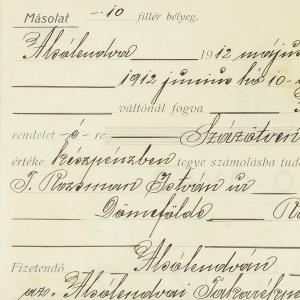 Másolat -10 fillér bélyeg.
Alsólendva 1912 május
1912 junius hó 10-
váltónál fogva
rendelet -é- re Százötven
értéke készpénzben tegye számolásba tud
T. Rozsman István ur
Dömefölde
Fizetendő Alsólendván
az. Alsólendvai Takarékp